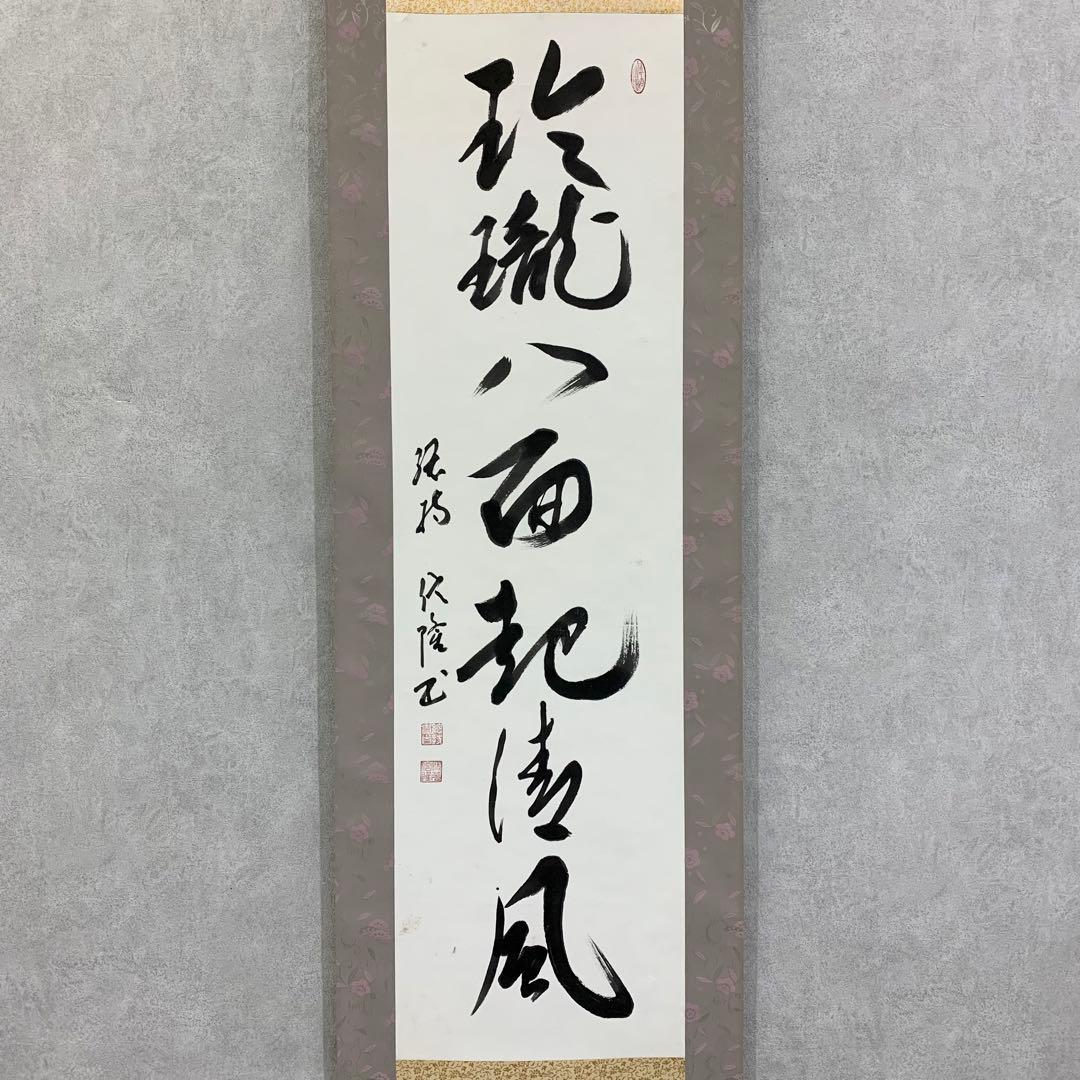 玲瓏八面起清風